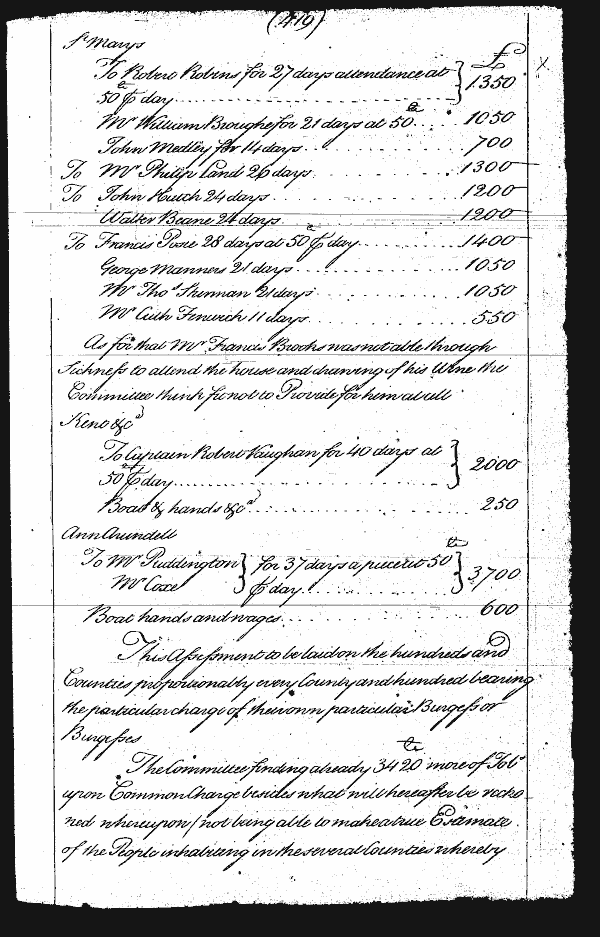 (419)
St Marys
£
To Robert Robins for 27 days attendance at
50 ℔ day 1350
Mr William Broughe for 21 days at 50 1050
John Medley for 14 days 700
To Mr Philip Land 26 days 1300
To John Hatch 24 days 1200
Walter Beane 24 days 1200
To Francis Posie 28 days at 50 ℔ day 1400
George Manners 21 days 1050
Mr Thos Sterman 21 days 1050
Mr Cuth Fenwick 11 days 550
As for that Mr Francis Brooks was not able through
Sickness to attend the house and drawing of his Wine the
Committee think fit not to Provide for him at all
Kent &ca
To Captain Robert Vaughan for 40 days at
50 ℔ day 2000
Boat & hands &ca 250
Ann Arundell
To Mr Puddington } for 37 days a piece at 50 lb
Mr Coxe ℔ day 3,700
Boat hands and wages 600
This Assessment to be laid on the hundreds and
Counties proportionably every County and hundred bearing
the particular charge of their own particular Burgess or
Burgesses
The Committee finding already 3420 lb more of Tobo
upon Common Charge besides what will hereafter be recko
ned whereupon (not being able to make a true Esamate
of the People inhabiting in the several Counties whereby